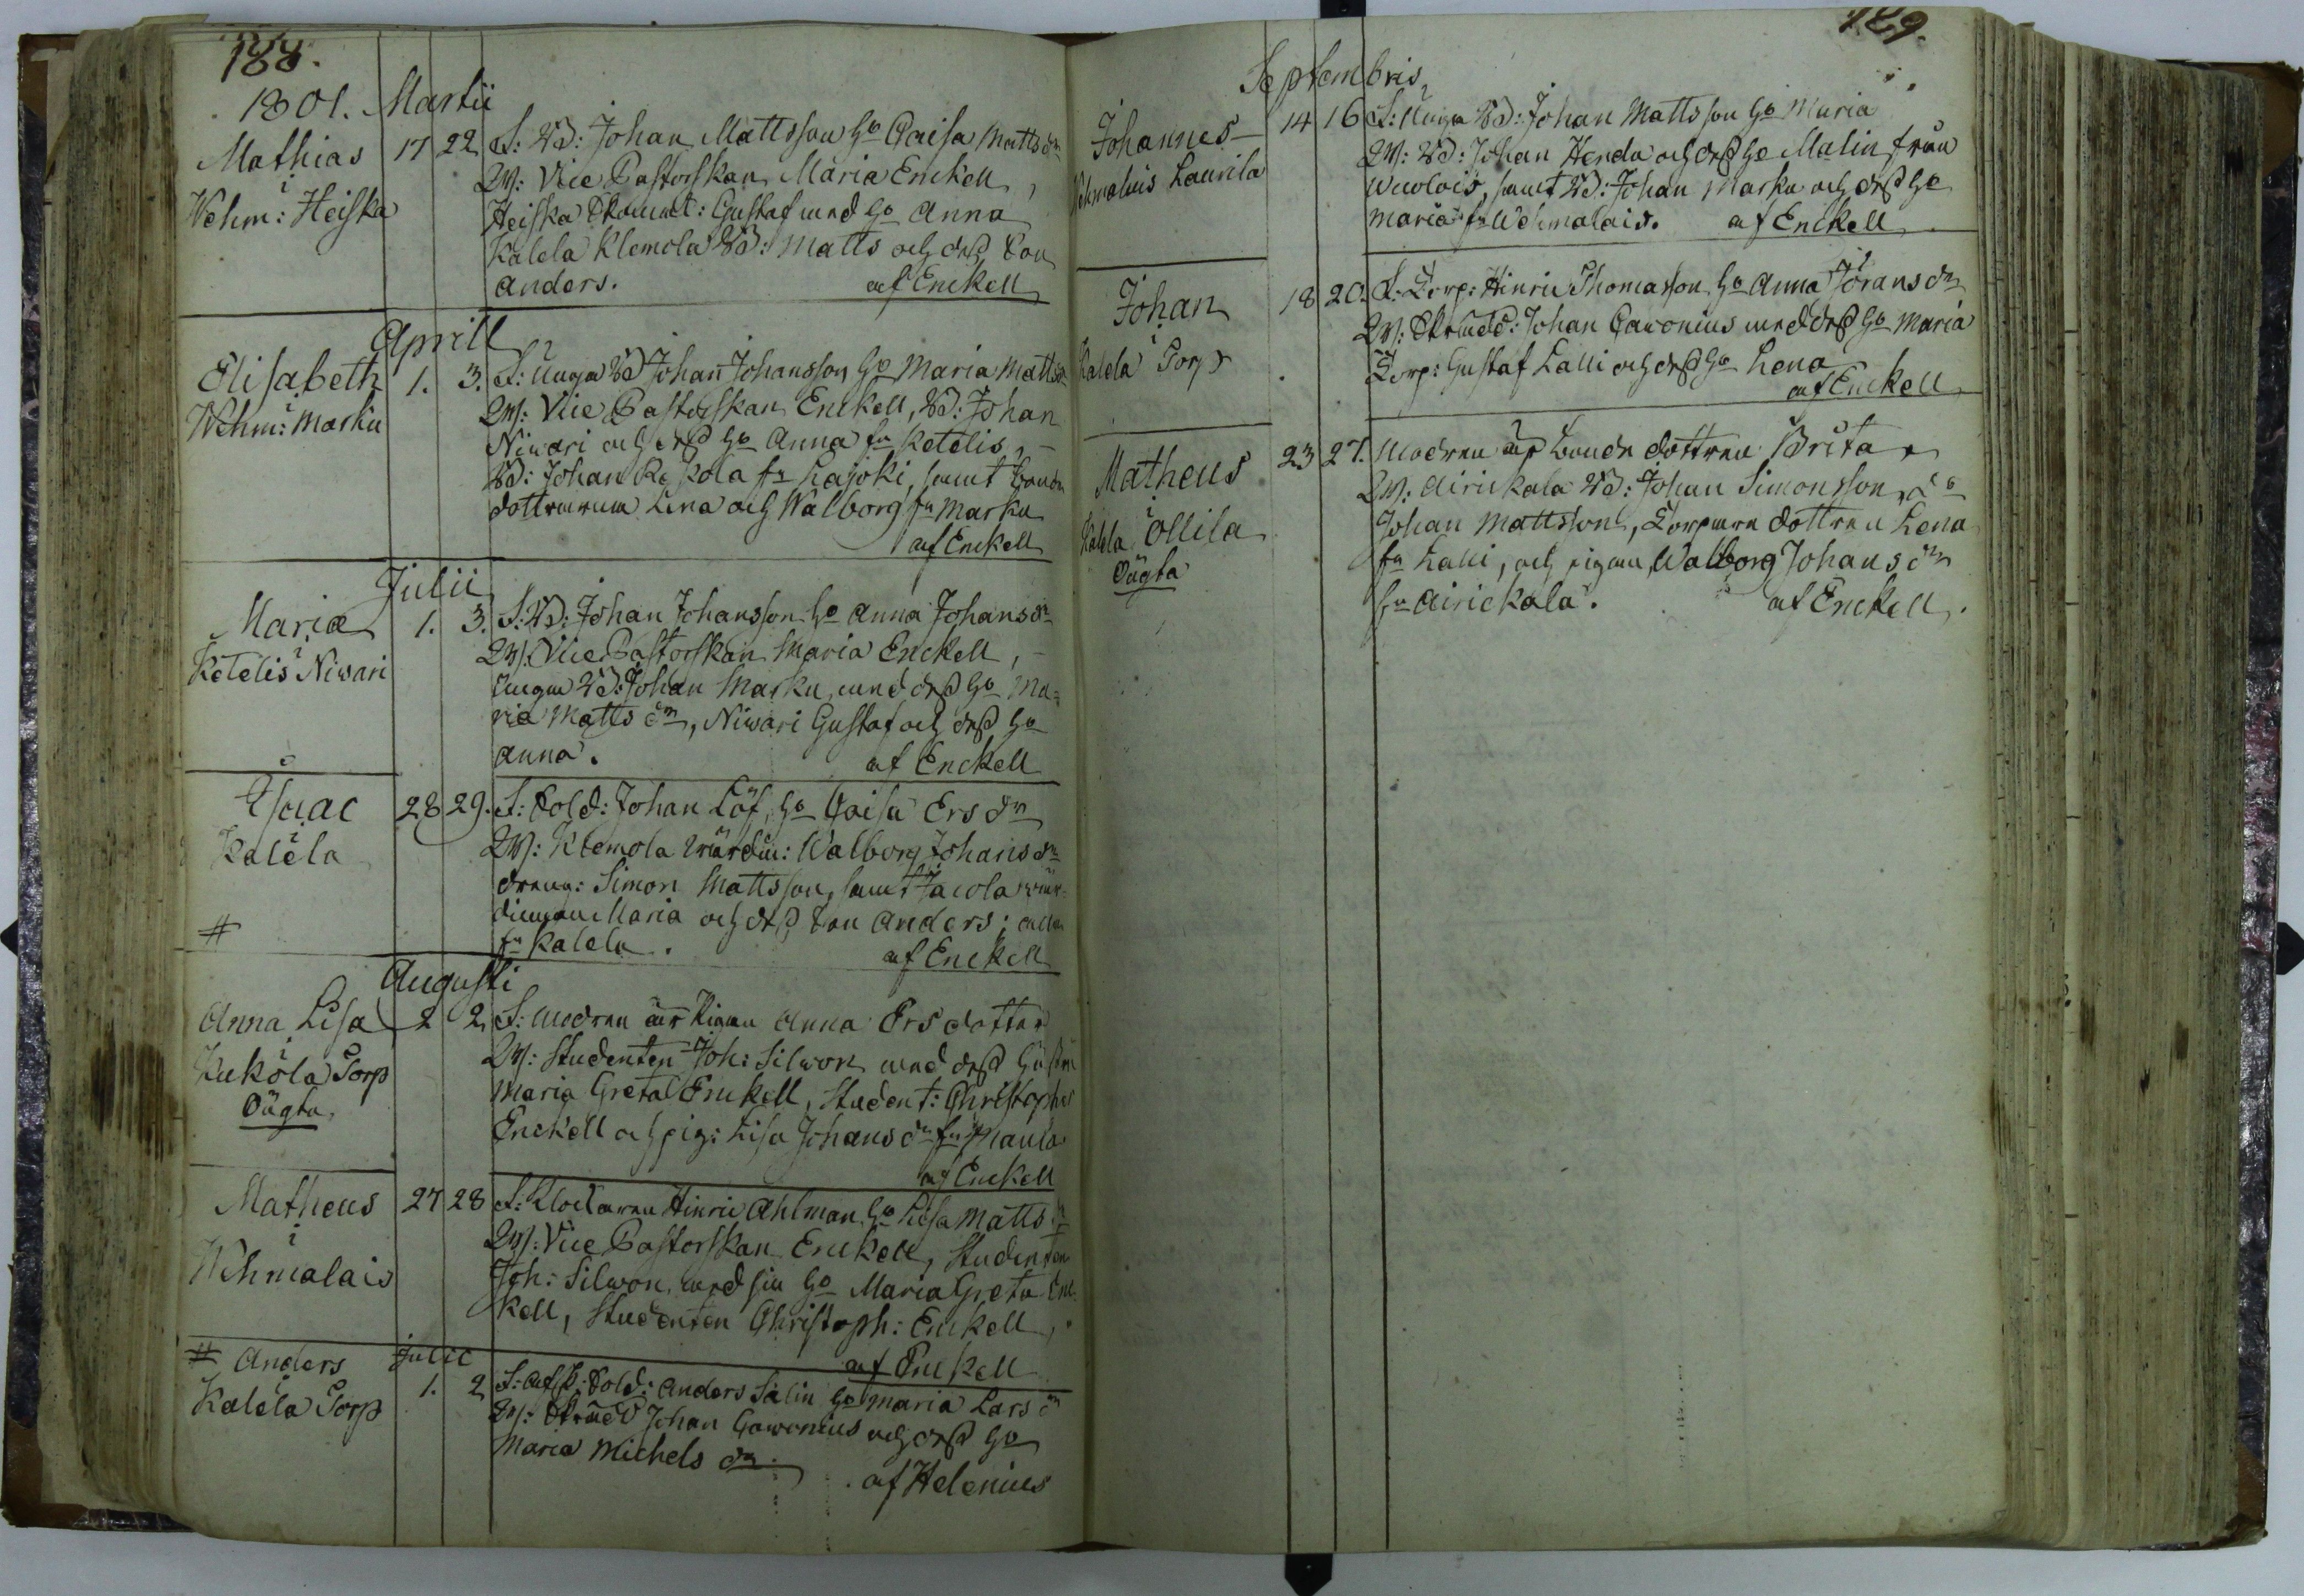 188.
1801. Martii
Mathias 17 22 F: Bd: Johan Mattsson ho Caisa Mattsdr
i W: Vice Pastorskan Maria Enckell,
Wehm: Heiska Heiska Gustaf med ho Anna
Kalela Klemola Bd: Matts och dess Son
Anders. af Enckell
Aprill
Elisabeth 1. 3. F: Unga Bd Johan Johansson ho Maria Matts
i W: Vice Pastorskan Enckell, Bd: Johan
Wehm: Marku Niwari och dess ho Anna fn Ketelis,
Bd: Johan fn Lajoki, samt bonde
döttrarna Lena och Walborg fn Marku
af Enckell
Julii
Maria 1. 3. F: Bd: Johan Johansson ho Anna Johansdr
i W: Vice Pastorskan Maria Enckell,
Ketelis Niwari Unga Bd: Johan Marku med dess ho Ma=
ria Matts dr, Niwari Gustaf och dess ho
Anna. af Enckell
Isaac 28 29. F: Sold: Johan Löf, ho Caisa Ers dr
i W: Klemola wärdin: Walborg Johansdr
Kalela dräng: Simon Mattsson, samt Jacola wär=
dinnan Maria och dess Son Anders; alla
# fn Kalela. af Enckell
Augusti
Anna Lisa 2 2 F: Modren är Pigan Anna Ersdotter
i W: Studenten Joh: Silwon med dess hustru
Kukola Torp Maria Greta Enckell, Student: Christopher
Oägta. Enckell och pig: Lisa Johans dr fn
af Enckell
Matheus 27 28 F: Klockaren Hinric Ahlman ho Lisa Matts dr
i W: Vice Pastorskan Enckell, Studenten
Wehmalais Joh: Silwon, med sin ho Maria Greta Enc
kell, Studenten Christoph: Enckell,
af Enckell
# Anders Julii
i 1. 2 F: Afsk: Sold: Anders Salin ho Maria Lars dr
Kalela Torp W: Skrädd Johan Gawonius och dess ho
Maria Michels dr. af Helenius
189.
Septembris
Johannes 14 16 F: Unga Bd: Johan Mattsson ho Maria
i W: Bd: Johan Henda och dess ho Malin från
Wehmalais Laurila samt Bd: Johan Marku och dess ho
Maria fn Wehmalais. af Enckell
Johan 18 20. F: Torp: Hinric Thomasson ho Anna Jöransdr
i W: Skrädd: Johan Gawonius med dess ho Maria
Kalela Torp Torp: Gustaf Lalli och dess ho Lena
af Enckell
Matheus 23 27. Modren är bonde dottren Brita
i W: Airickala Bd: Johan Simonsson, do
Kalela Ollila Johan Mattsson, Torpare dottren Lena
Oägta fn Lalli, och pigan Walborg Johans dr
fn Airickala. af Enckell.